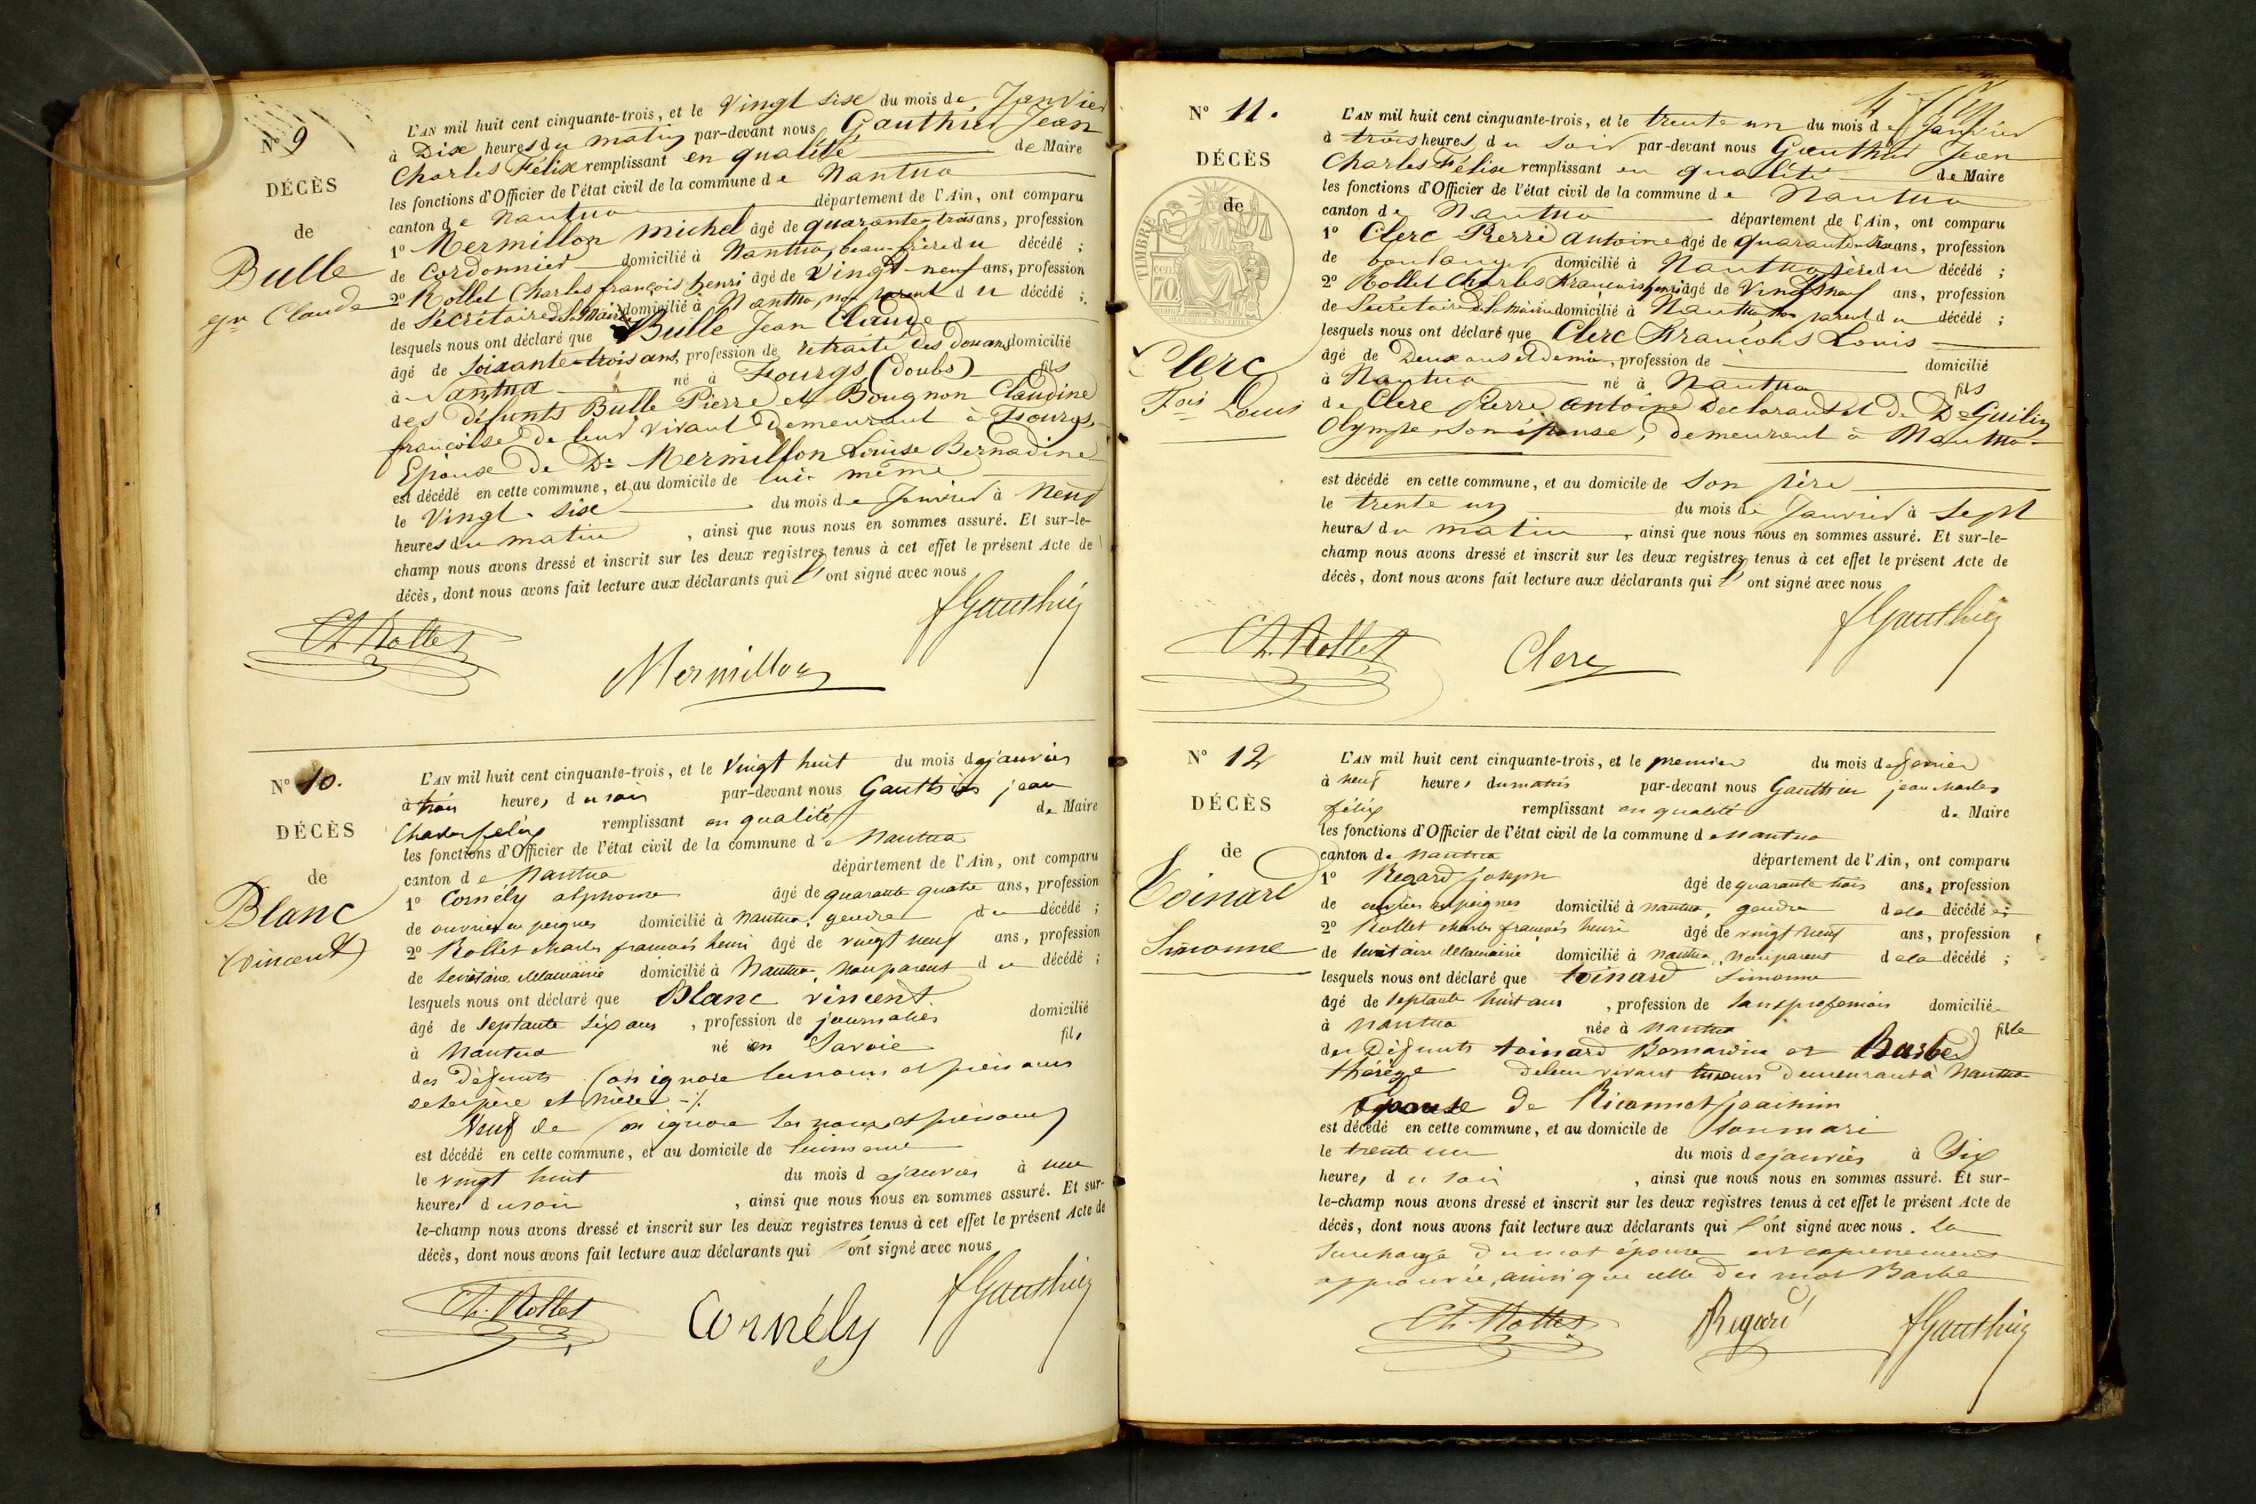 N° 9
DÉCÈS
de
Bulle
Jn Claude
L'AN mil huit cent cinquante-trois, et le Vingt sixe du mois de Janvier
à Dixe heures du matin par-devant nous Gauthier Jean
Charles Félix remplissant en qualité de Maire
les fonctions d'Officier de l'état civil de la commune de Nantua
canton de Nantua département de l'Ain, ont comparu
1° Mermillon Michel âgé de quarante-trois ans, profession
de Cordonnier domicilié à Nantua, beau-frère du décédé ;
2° Rollet Charles françois henri âgé de Vingt-neuf ans, profession
de Sécrétaire de la Mairie domicilié à Nantua, non parent du décédé ;
lesquels nous ont déclaré que Bulle Jean Claude
âgé de Soixante-trois ans, profession de retraité des douanes domicilié
à Nantua né à Fourgs (doubs) fils
des défunts Bulle Pierre et Bougnon Claudine
françoise de leur vivant Demeurant à Fourgs,
Epoux de De Mermillon Louise Bernadine
est décédé en cette commune, et au domicile de lui-même
le Vingt-sixe du mois de Janvier à Neuf
heures du matin, ainsi que nous nous en sommes assuré. Et sur-le-
champ nous avons dressé et inscrit sur les deux registres tenus à cet effet le présent Acte de
décès, dont nous avons fait lecture aux déclarants qui l'ont signé avec nous
Ch. Rollet
Mermillon
f Gauthier
N° 10.
DÉCÈS
de
Blanc
(vincent)
L'AN mil huit cent cinquante-trois, et le Vingt huit du mois de janvier
à trois heures du soir par-devant nous Gauthier jean
Charles félix remplissant en qualité de Maire
les fonctions d'Officier de l'état civil de la commune de Nantua
canton de Nantua département de l'Ain, ont comparu
1° Cornély alphonse âgé de quarante quatre ans, profession
de ouvrier en peignes domicilié à Nantua, gendre du décédé ;
2° Rollet charles françois henri âgé de vingt neuf ans, profession
de secrétaire de la mairie domicilié à Nantua, non parent du décédé ;
lesquels nous ont déclaré que Blanc vincent
âgé de septante six ans, profession de journalier domicilié
à Nantua né en Savoie fils
des défunts (on ignore les noms et prénoms
de ses père et mère) -/.
Veuf de (on ignore les noms et prénoms)
est décédé en cette commune, et au domicile de lui même
le vingt huit du mois de janvier à une
heures du soir, ainsi que nous nous en sommes assuré. Et sur-
le-champ nous avons dressé et inscrit sur les deux registres tenus à cet effet le présent Acte de
décès, dont nous avons fait lecture aux déclarants qui l'ont signé avec nous
Ch. Rollet
Cornély
f Gauthier
N° 11.
DÉCÈS
de
TIMBRE
cent
70
Clerc
Fois Louis
L'AN mil huit cent cinquante-trois, et le trente un du mois de Janvier
à trois heures du soir par-devant nous Gauthier Jean
Charles Félix remplissant en qualité de Maire
les fonctions d'Officier de l'état civil de la commune de Nantua
canton de Nantua département de l'Ain, ont comparu
1° Clerc Pierre Antoine âgé de quarante ans, profession
de boulanger domicilié à Nantua, père du décédé ;
2° Rollet Charles François henri âgé de Vingt neuf ans, profession
de Secrétaire de la Mairie domicilié à Nantua, non parent du décédé ;
lesquels nous ont déclaré que Clerc François Louis
âgé de Deux ans et demi, profession de domicilié
à Nantua né à Nantua fils
de Clerc Pierre antoine déclarant et de De Guilin
Olympe, son épouse, demeurant à Nantua
est décédé en cette commune, et au domicile de son père
le trente un du mois de Janvier à Sept
heures du matin, ainsi que nous nous en sommes assuré. Et sur-le-
champ nous avons dressé et inscrit sur les deux registres tenus à cet effet le présent Acte de
décès, dont nous avons fait lecture aux déclarants qui l'ont signé avec nous
Ch. Rollet
Clerc
f Gauthier
N° 12
DÉCÈS
de
Toinard
Simonne
L'AN mil huit cent cinquante-trois, et le premier du mois de fevrier
à neuf heures du matin par-devant nous Gauthier jean charles
félix remplissant en qualité de Maire
les fonctions d'Officier de l'état civil de la commune de Nantua
canton de Nantua département de l'Ain, ont comparu
1° Regard joseph âgé de quarante trois ans, profession
de ouvrier en peignes domicilié à nantua, gendre de la décédée ;
2° Rollet charles françois henri âgé de vingt neuf ans, profession
de secrétaire de la mairie domicilié à nantua, non parent de la décédé ;
lesquels nous ont déclaré que toinard Simonne
âgé de septante huit ans, profession de sans profession domiciliée
à Nantua née à Nantua fille
des défunts toinard Bernardin et Barbe
thérèze de leur vivant demeurant à Nantua
Epouse de Ricannet joachim
est décédé en cette commune, et au domicile de son mari
le trente un du mois de janvier à Six
heures du soir, ainsi que nous nous en sommes assuré. Et sur-
le-champ nous avons dressé et inscrit sur les deux registres tenus à cet effet le présent Acte de
décès, dont nous avons fait lecture aux déclarants qui l'ont signé avec nous. La
surcharge du mot épouse est expressement
approuvée, ainsi que celle du mot Barbe
Ch. Rollet
Regard
f Gauthier